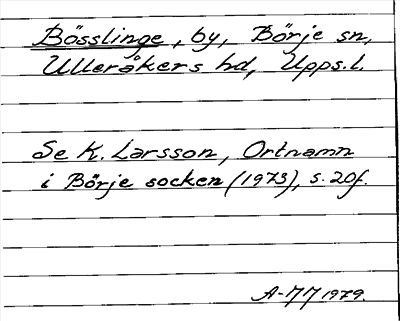 Bösslinge, by, Börje sn,
Ulleråkers hd, Upps.l.
Se K. Larsson, Ortnamn
i Börje socken (1973), s. 20f.
A-M M 1979.